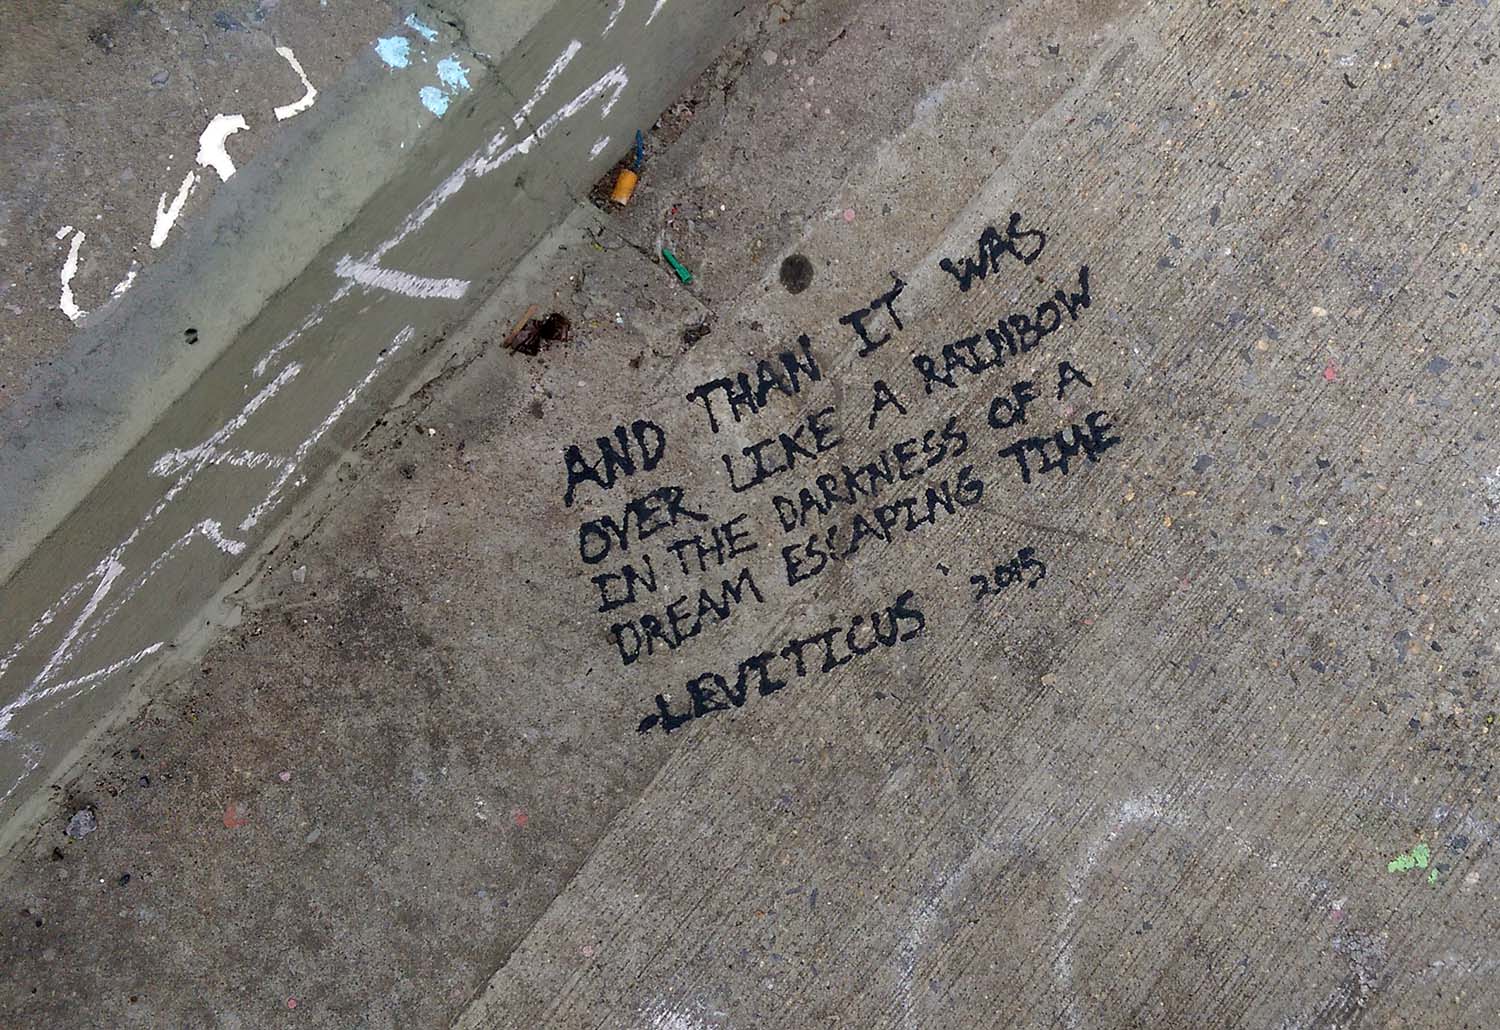 AND THAN IT WAS
OVER LIKE A RAINBOW
IN THE DARKNESS OF A
DREAM ESCAPING TIME
-LEVITICUS 2015